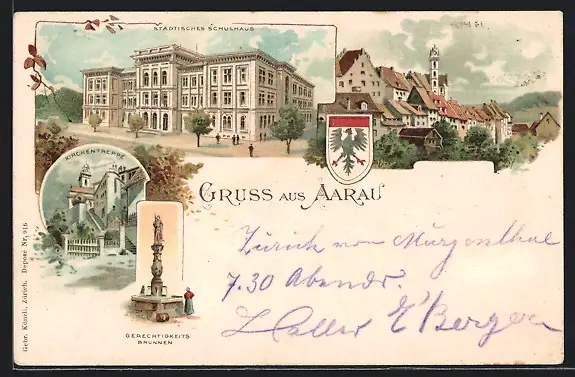 STÄDTISCHES SCHULHAUS
KIRCHENTREPPE
GRUSS AUS AARAU
Zürich von Murgenthal
7.30 Abends.
GERECHTIGKEITS
BRUNNEN
Gebr. Künzli, Zürich. Deposé Nr. 916